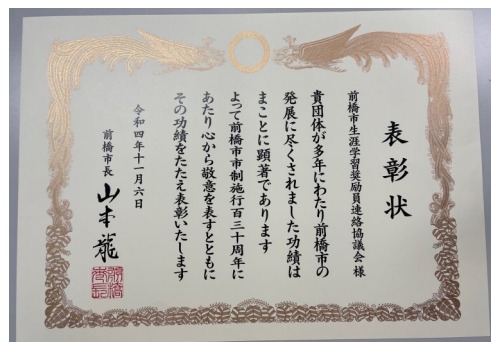 表彰状
前橋市生涯学習奨励員連絡協議会 様
貴団体が多年にわたり前橋市の
発展に尽くされました功績は
まことに顕著であります
よって前橋市市制施行百三十周年に
あたり心から敬意を表すとともに
その功績をたたえ表彰いたします
令和四年十一月六日
前橋市長 山本龍